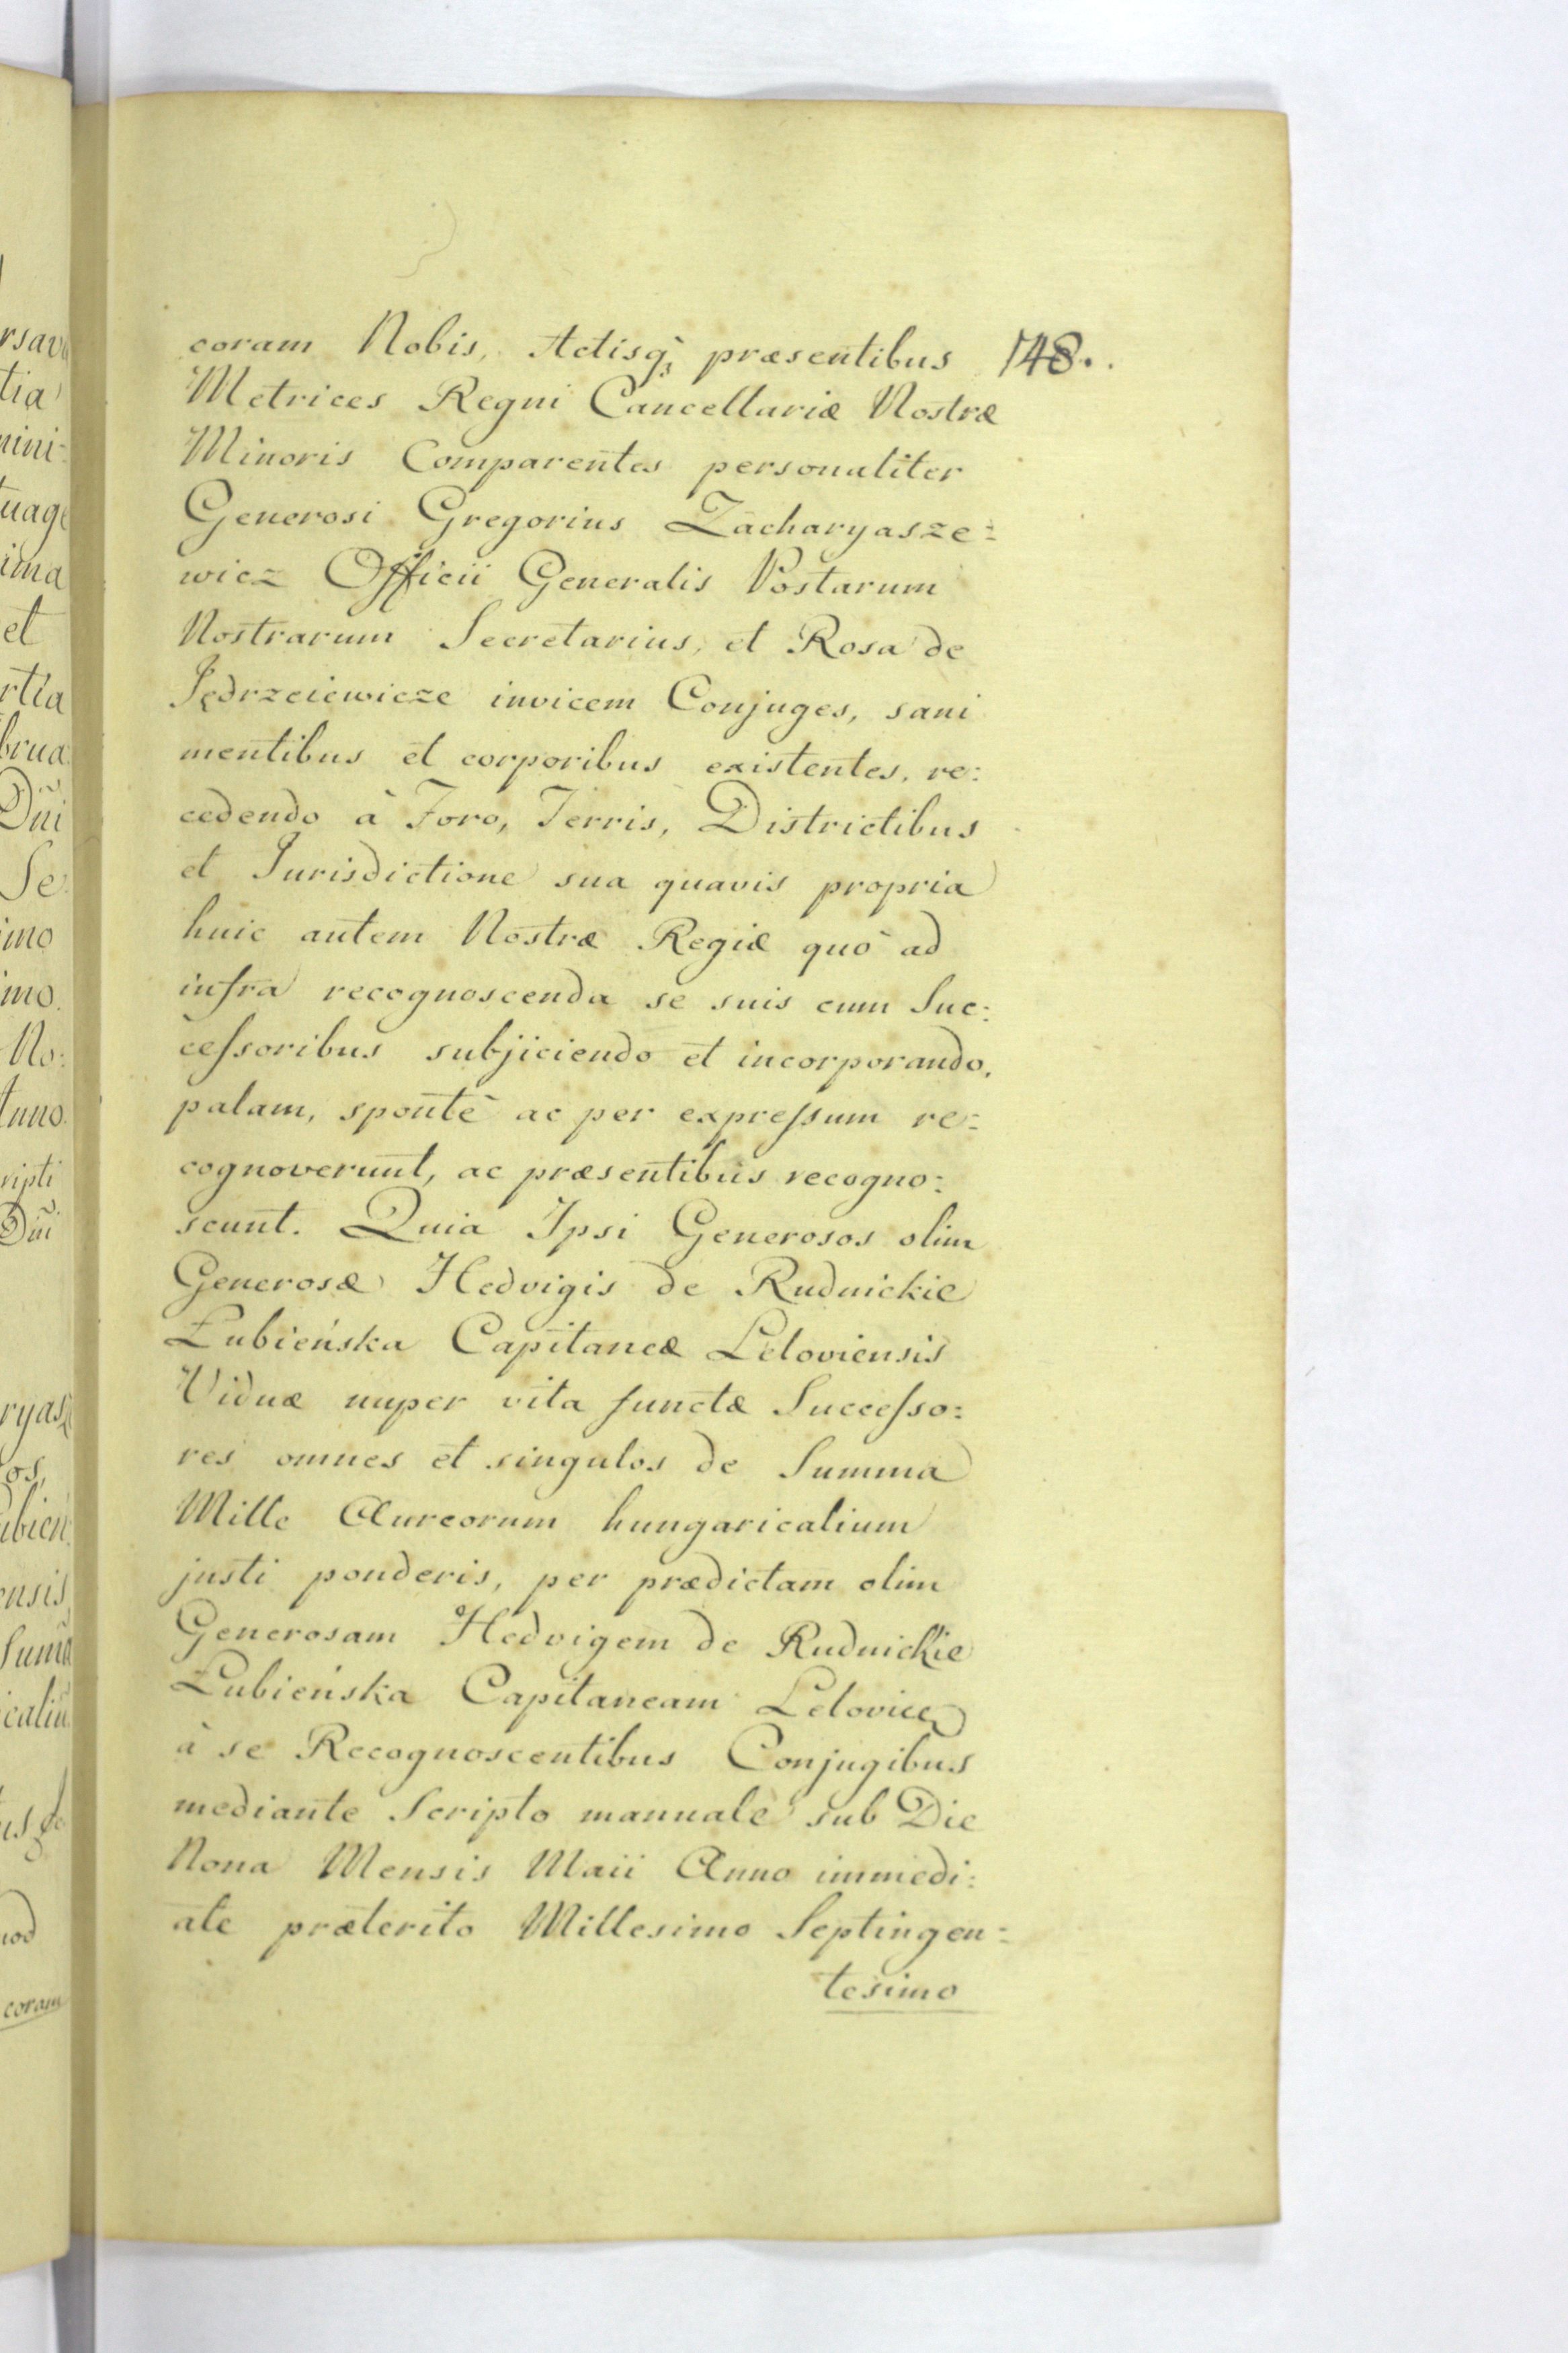 coram Nobis, Actisq́ꝫ præsentibus 748.
Metrices Regni Cancellariæ Nostræ
Minoris Comparentes personaliter
Generosi Gregorius Zacharyasze=
wicz Officii Generalis Postarum
Nostrarum Secretarius, et Rosa de
Jędrzeiewicze invicem Conjuges, sani
mentibus et corporibus existentes, re:
cedendo à Foro, Terris, Districtibus
et Jurisdictione sua quavis propria
huic autem Nostræ Regiæ quò ad
infra recognoscenda se suis cum Suc:
cefsoribus subjiciendo et incorporando,
palam, spontè ac per exprefsum re:
cognoverunt, ac præsentibus recogno:
scunt. Quia Ipsi Generosos olim
Generosæ Hedvigis de Rudnickie
Łubieńska Capitaneæ Leloviensis
Viduæ nuper vita functæ Succefso:
res omnes et singulos de Summa
Mille Aureorum hungaricalium
justi ponderis, per prædictam olim
Generosam Hedvigem de Rudnickie
Łubieńska Capitaneam Lelovien
à se Recognoscentibus Conjugibus
mediante Scripto manuale sub Die
Nona Mensis Maii Anno immedi:
ate præterito Millesimo Septingen=
tesimo